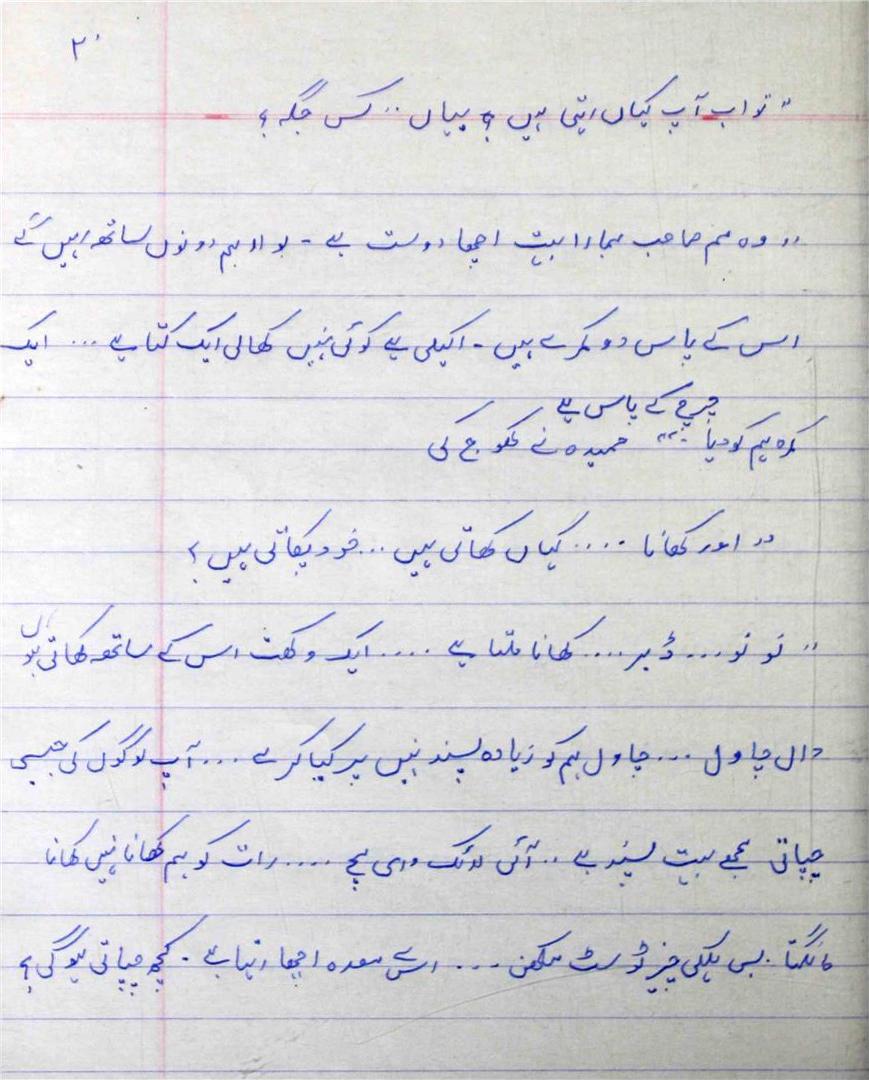 ۲۰
" تو اب آپ کہاں رہتی ہیں ؟ یہاں .. کس جگہ ؟
" وہ مم صاحب ہمارا بہت اچھا دوست ہے - بولا ہم دونوں ساتھ رہیں گے
اس کے پاس دو کمرے ہیں - اکیلی ہے کوئی نہیں کھالی ایک کتا ہے ... ایک
چرچ کے پاس ہے
کمرہ ہم کو دیا .. " حمیدہ نے کھوج کی
" اور کھانا .... کہاں کھاتی ہیں ... خود پکاتی ہیں ؟
" نو نو ... ڈیر .... کھانا ملتا ہے .... ایک وکھت اس کے ساتھ کھاتی ہوں
دال چاول ... چاول ہم کو زیادہ پسند نہیں پر کیا کرے ... آپ لوگوں کی جیسی
چپاتی مجھے بہت پسند ہے .. آئی لائک ویری مچ .... رات کو ہم کھانا نہیں کھانا
مانگتا . بس ہلکی چیز ٹوسٹ مکھن ... اس سے معدہ اچھا رہتا ہے - کچھ چپاتی ہوگی ؟